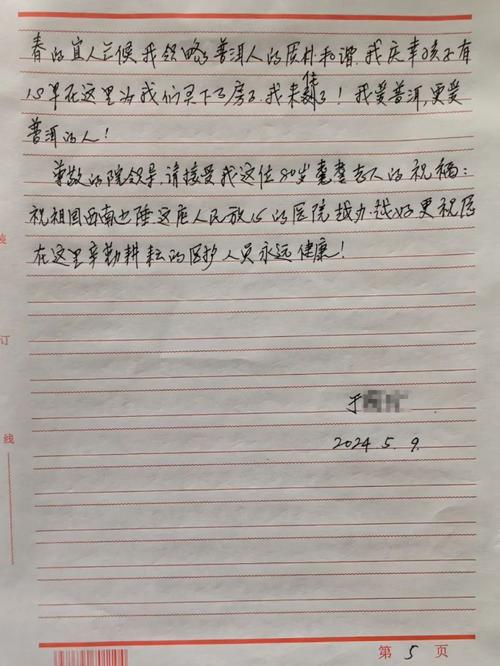 春的宜人气候,我领略了普洱人的质朴和谐,我庆幸孩子有
18年在这里为我们买下了房子,我来住对了!我爱普洱,更爱
普洱的人!
尊敬的院领导,请接受我这位80岁耄耋老人的祝福:
祝祖国西南边陲这座人民放心的医院越办越好,更祝愿
在这里辛勤耕耘的医护人员永远健康!
于
2024.5.9.
装
订
线
第 5 页